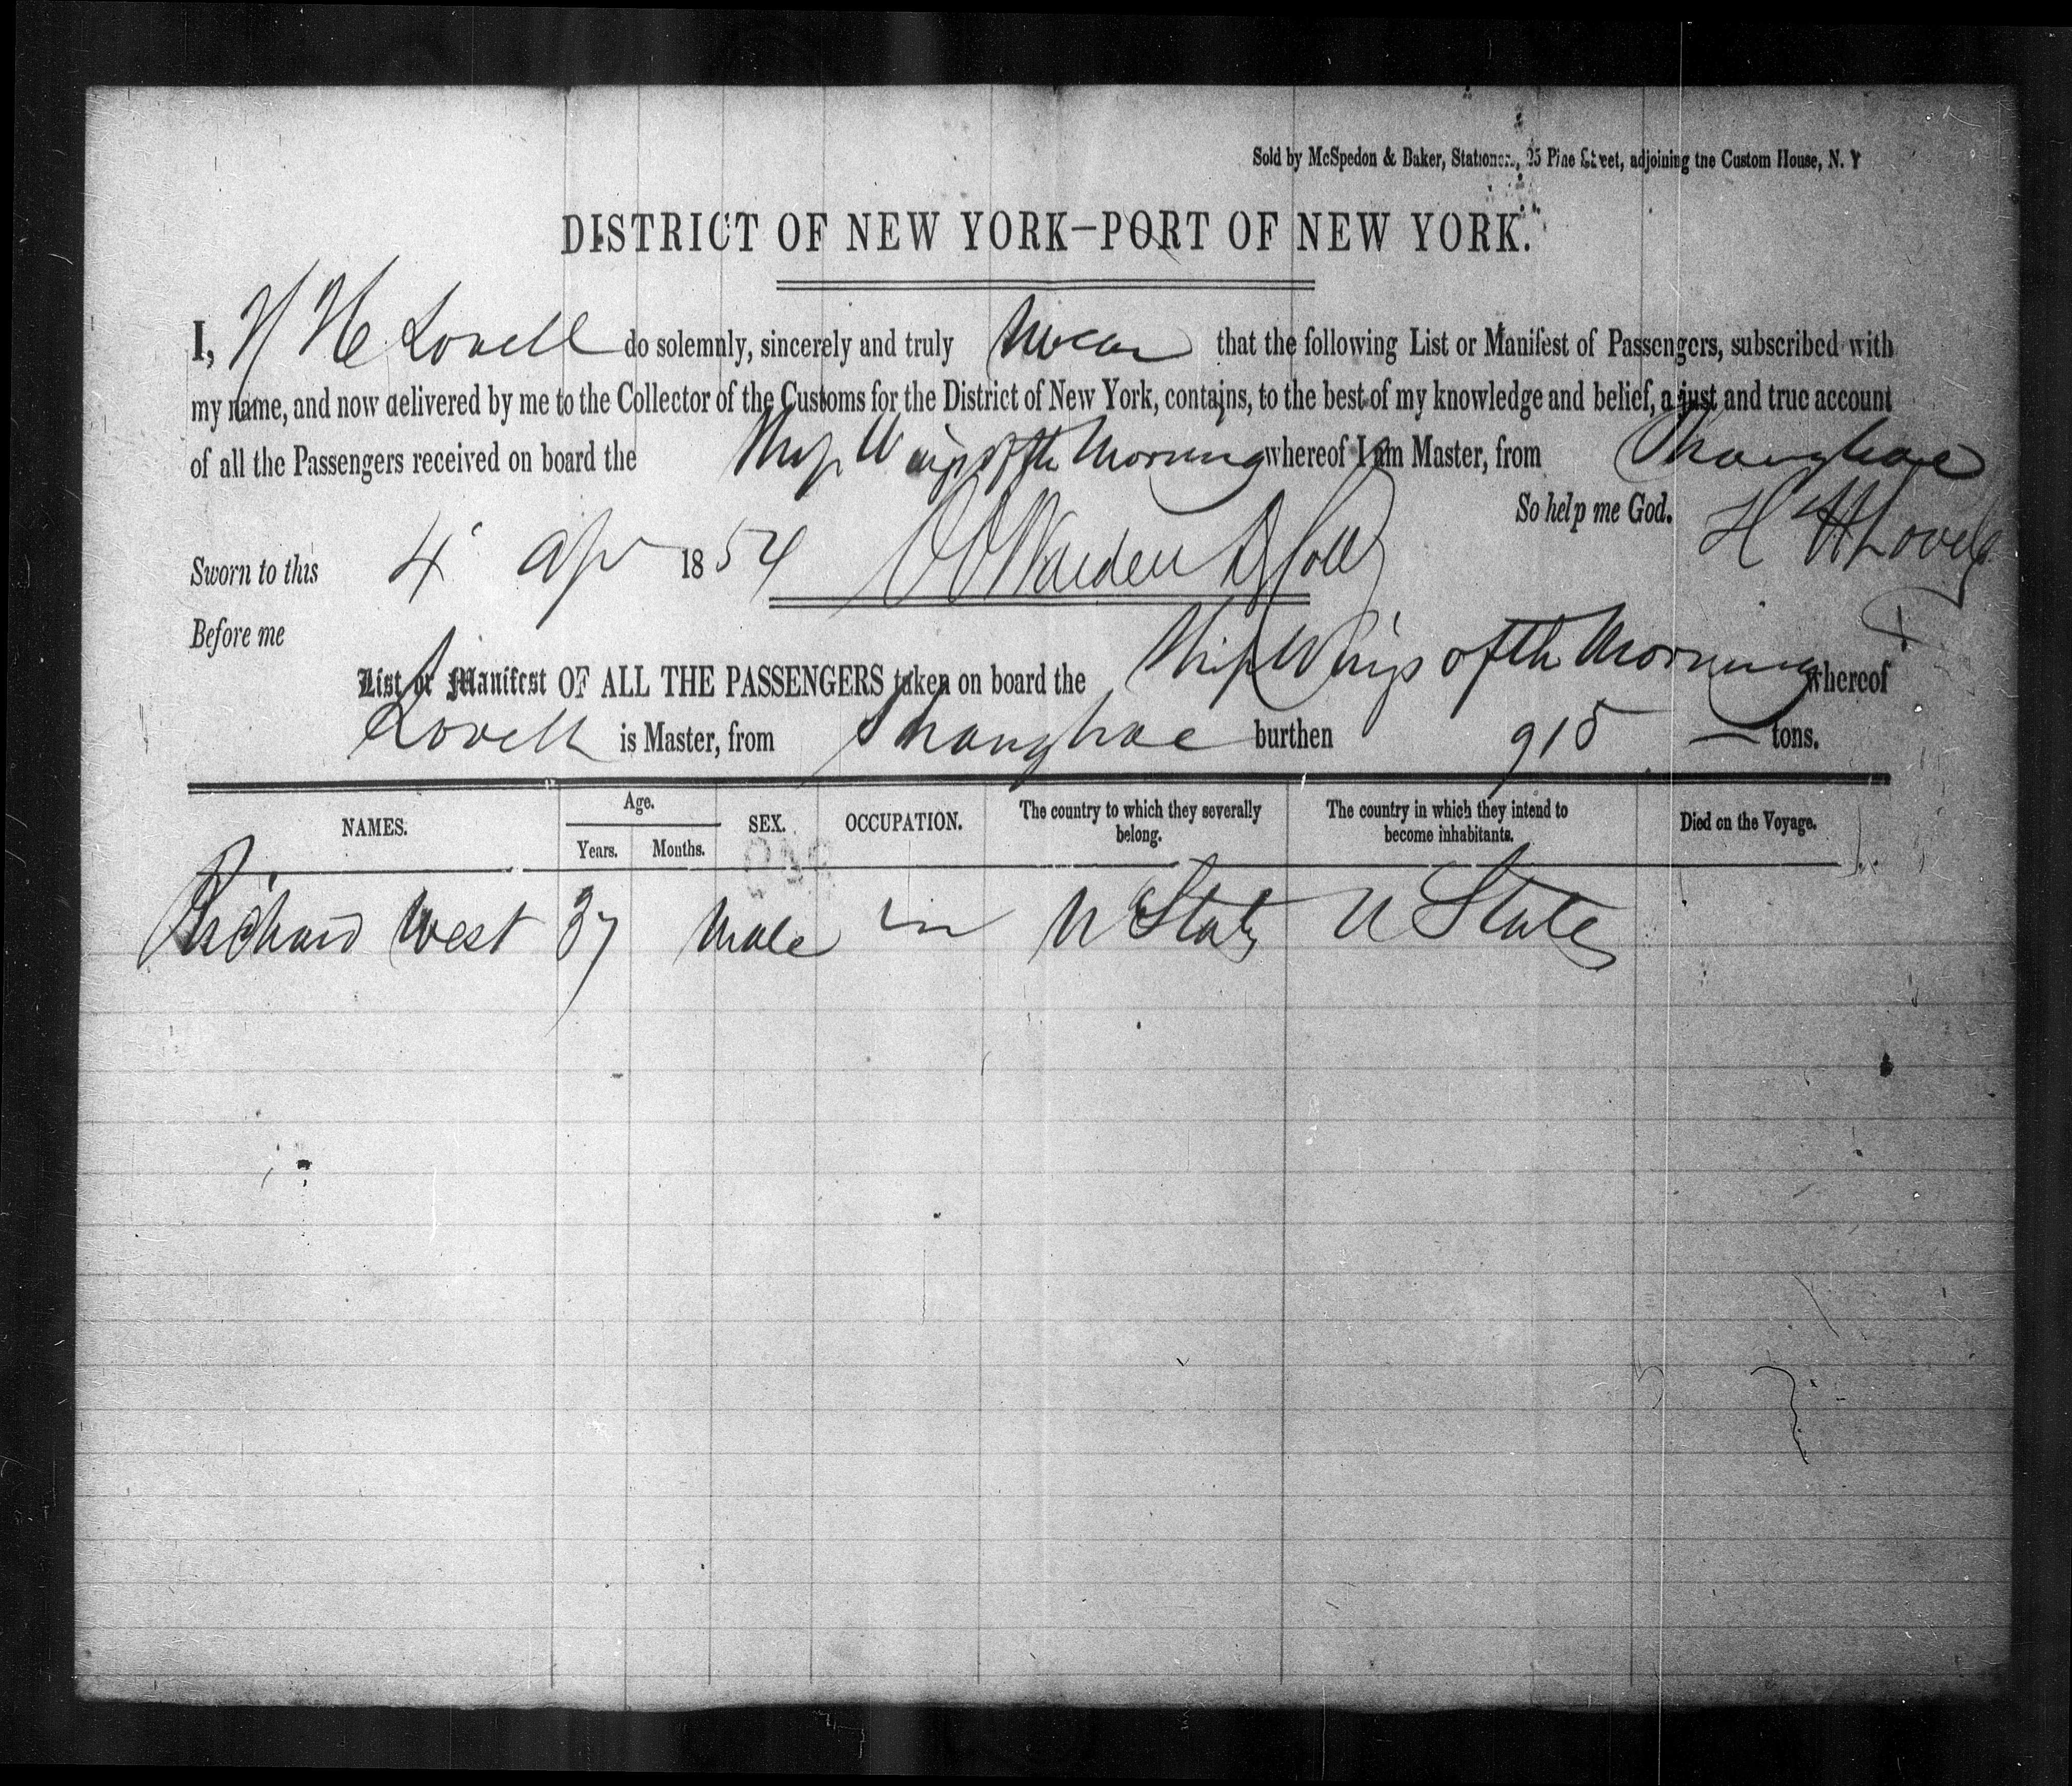 Sold by McSpedon & Baker, Stationers, 25 Pine Street, adjoining the Custom House, N. Y
DISTRICT OF NEW YORK–PORT OF NEW YORK.
I, H H Lovell do solemnly, sincerely and truly swear that the following List or Manifest of Passengers, subscribed with
my name, and now delivered by me to the Collector of the Customs for the District of New York, contains, to the best of my knowledge and belief, a just and true account
of all the Passengers received on board the Ship Wings of the Morning whereof I am Master, from Shanghae
So help me God. H H Lovell
Sworn to this 4 Apr 1854
Before me
List or Manifest OF ALL THE PASSENGERS taken on board the Ship Wings of the Morning whereof
Lovell is Master, from Shanghae burthen 915 tons.
NAMES. Age. Years. Months. SEX. OCCUPATION. The country to which they severally belong. The country in which they intend to become inhabitants. Died on the Voyage.
Richard West 37 Male U States U States